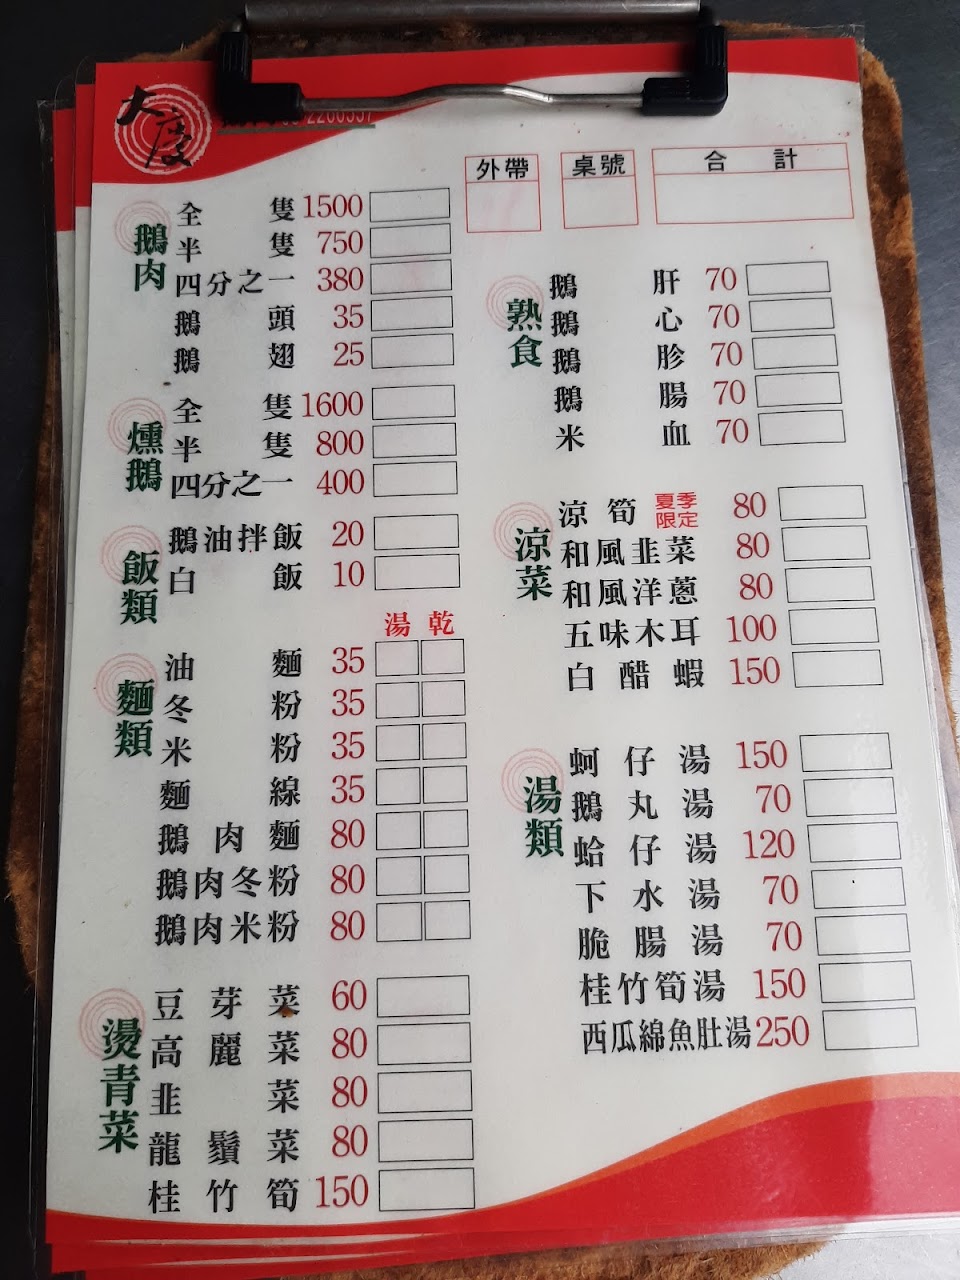 大慶
外帶 桌號 合計
鵝肉
全隻 1500
半隻 750
四分之一 380
鵝頭 35
鵝翅 25
燻鵝
全隻 1600
半隻 800
四分之一 400
飯類
鵝油拌飯 20
白飯 10
麵類
湯 乾
油麵 35
冬粉 35
米粉 35
麵線 35
鵝肉麵 80
鵝肉冬粉 80
鵝肉米粉 80
燙青菜
豆芽菜 60
高麗菜 80
韭菜 80
龍鬚菜 80
桂竹筍 150
熟食
鵝肝 70
鵝心 70
鵝胗 70
鵝腸 70
米血 70
涼菜
涼筍 夏季限定 80
和風韭菜 80
和風洋蔥 80
五味木耳 100
白醋蝦 150
湯類
蚵仔湯 150
鵝丸湯 70
蛤仔湯 120
下水湯 70
脆腸湯 70
桂竹筍湯 150
西瓜綿魚肚湯 250